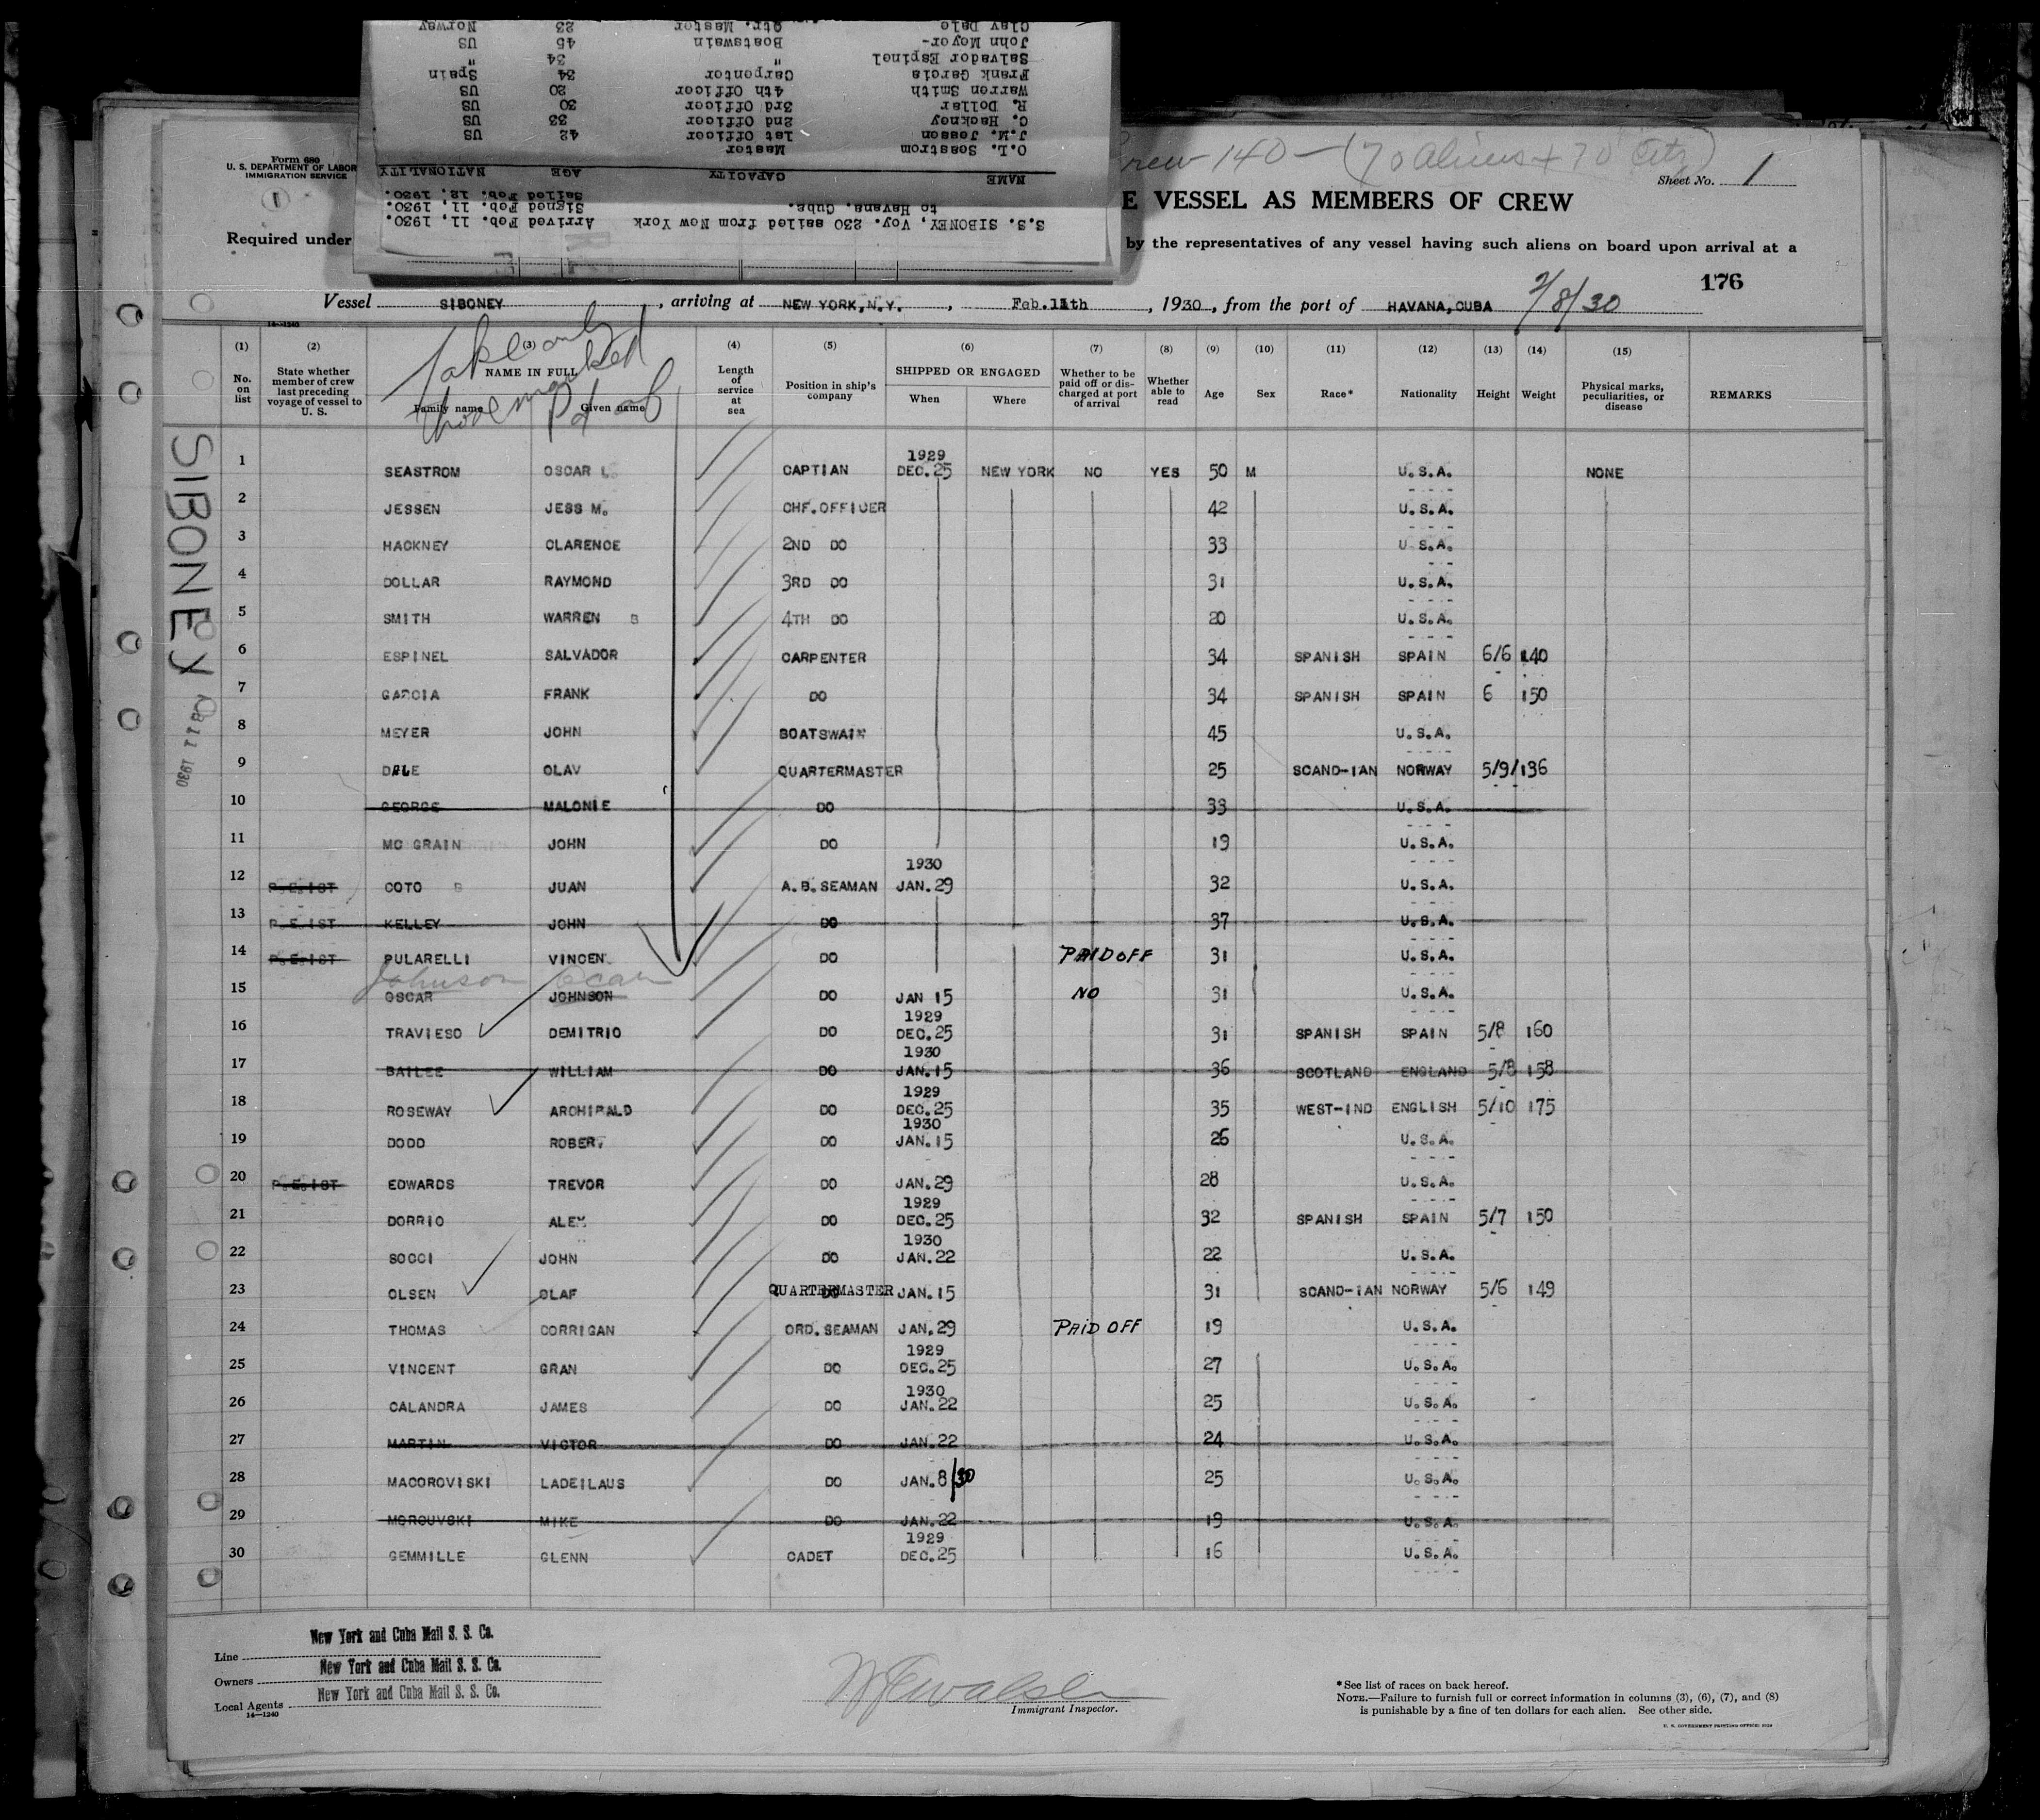 Clay Dale Qtr. Master 23 Norway
John Meyer- Boatswain 45 US
Salvador Espinel " 34 "
Frank Garcia Carpenter 34 Spain
Warren Smith 4th Officer 20 US
R. Dollar 3rd Officer 30 US
C. Hackney 2nd Officer 33 US
J.M. Jessen 1st Officer 42 US
O.L. Seastrom Master
NAME CAPACITY AGE NATIONALITY
Sailed Feb. 12, 1930.
to Havana, Cuba. Signed Feb. 11, 1930.
S.S. SIBONEY, Voy. 230 sailed from New York Arrived Feb. 11, 1930.
Form 680
U. S. DEPARTMENT OF LABOR
IMMIGRATION SERVICE
1
Crew 140 - (70 aliens + 70 Citz)
Sheet No. 1
E VESSEL AS MEMBERS OF CREW
Required under by the representatives of any vessel having such aliens on board upon arrival at a
176
Vessel SIBONEY, arriving at NEW YORK, N.Y., Feb.11th, 1930, from the port of HAVANA, CUBA 2/8/30
14-1240
Take only
those marked
Pd off
(1) (2) (3) (4) (5) (6) (7) (8) (9) (10) (11) (12) (13) (14) (15)
No. on list State whether member of crew last preceding voyage of vessel to U. S. NAME IN FULL Family name Given name Length of service at sea Position in ship's company SHIPPED OR ENGAGED When Where Whether to be paid off or discharged at port of arrival Whether able to read Age Sex Race* Nationality Height Weight Physical marks, peculiarities, or disease REMARKS
SIBONEY
FEB 11 1930
1 SEASTROM OSCAR L CAPTIAN 1929 DEC.25 NEW YORK NO YES 50 M U.S.A. NONE
2 JESSEN JESS M. CHF.OFFICER 42 U.S.A.
3 HACKNEY CLARENCE 2ND DO 33 U.S.A.
4 DOLLAR RAYMOND 3RD DO 31 U.S.A.
5 SMITH WARREN B 4TH DO 20 U.S.A.
6 ESPINEL SALVADOR CARPENTER 34 SPANISH SPAIN 6/6 140
7 GARCIA FRANK DO 34 SPANISH SPAIN 6 150
8 MEYER JOHN BOATSWAIN 45 U.S.A.
9 DALE OLAV QUARTERMASTER 25 SCAND-IAN NORWAY 5/9/136
10 GEORGE MALONIE DO 33 U.S.A.
11 MC GRAIN JOHN DO 19 U.S.A.
12 P.E.IST COTO B JUAN A.B.SEAMAN 1930 JAN.29 32 U.S.A.
13 P.E.IST KELLEY JOHN DO 37 U.S.A.
14 P.E.IST PULARELLI VINCEN DO PAID OFF 31 U.S.A.
Johnson Oscar
15 OSCAR JOHNSON DO JAN 15 NO 31 U.S.A.
16 TRAVIESO DEMITRIO DO 1929 DEC.25 31 SPANISH SPAIN 5/8 160
17 BAILEE WILLIAM DO 1930 JAN.15 36 SCOTLAND ENGLAND 5/8 158
18 ROSEWAY ARCHIBALD DO 1929 DEC.25 35 WEST-IND ENGLISH 5/10 175
19 DODD ROBERT DO 1930 JAN.15 26 U.S.A.
20 P.E.IST EDWARDS TREVOR DO JAN.29 28 U.S.A.
21 DORRIO ALEX DO 1929 DEC.25 32 SPANISH SPAIN 5/7 150
22 SOCCI JOHN DO 1930 JAN.22 22 U.S.A.
23 OLSEN OLAF QUARTERMASTER JAN.15 31 SCAND-IAN NORWAY 5/6 149
24 THOMAS CORRIGAN ORD.SEAMAN JAN.29 PAID OFF 19 U.S.A.
25 VINCENT GRAN DO 1929 DEC.25 27 U.S.A.
26 CALANDRA JAMES DO 1930 JAN.22 25 U.S.A.
27 MARTIN VICTOR DO JAN.22 24 U.S.A.
28 MACOROVISKI LADEILAUS DO JAN.8/30 25 U.S.A.
29 MOROUVSKI MIKE DO JAN.22 19 U.S.A.
30 GEMMILLE GLENN CADET 1929 DEC.25 16 U.S.A.
Line New York and Cuba Mail S. S. Co.
Owners New York and Cuba Mail S. S. Co.
Local Agents New York and Cuba Mail S. S. Co.
14-1240
Immigrant Inspector.
*See list of races on back hereof.
NOTE.—Failure to furnish full or correct information in columns (3), (6), (7), and (8)
is punishable by a fine of ten dollars for each alien. See other side.
U. S. GOVERNMENT PRINTING OFFICE: 1929